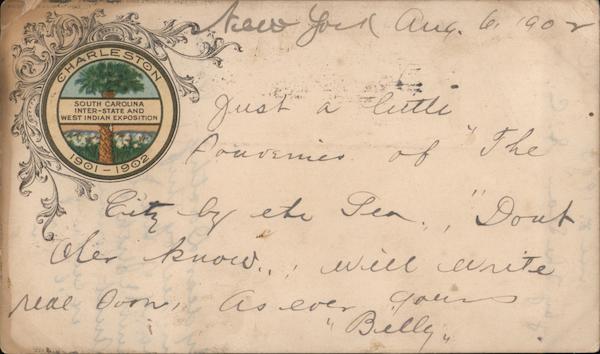 New York Aug. 6, 1902
CHARLESTON
SOUTH CAROLINA
INTER-STATE AND
WEST INDIAN EXPOSITION
1901-1902
Just a little
Souvenier of "The
City by the Sea," Dont
cher know.. Will write
real soon, As ever yours
"Billy"